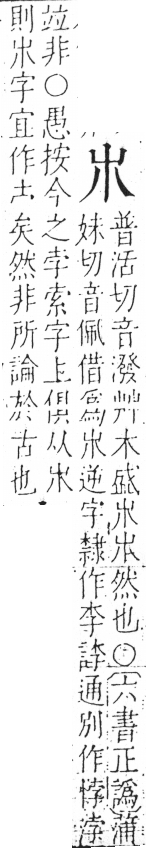 𣎵
普活切音潑艸木盛𣎵𣎵然也○六書正譌蒲
妹切音佩借爲𣎵逆字隸作孛誖通別作悖浡
竝非○愚按今之孛索字上俱从𣎵
則𣎵字宜作矣然非所論於古也